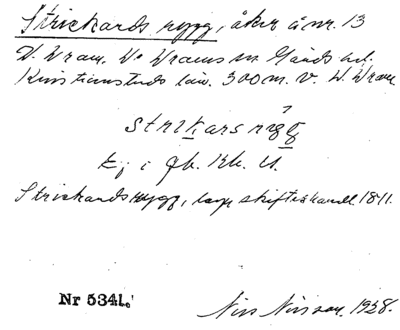 Strickards rygg, åker å nr. 13
V. Vram, V. Vrams sn Gärds hd.
Kristianstads län. 300 m. V. V. Vram
strikarsrigg
Ej i gb. kk. u.
Strickards rygg, laga skifteshandl. 1841.
Nr 5341.
Nils Nilsson. 1928.